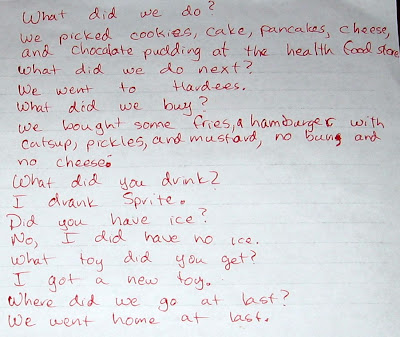 What did we do?
We picked cookies, cake, pancakes, cheese,
and chocolate pudding at the health food store
What did we do next?
We went to Hardees.
What did we buy?
We bought some fries, a hamburger with
catsup, pickles, and mustard, no bun, and
no cheese.
What did you drink?
I drank Sprite.
Did you have ice?
No, I did have no ice.
What toy did you get?
I got a new toy.
Where did we go at last?
We went home at last.